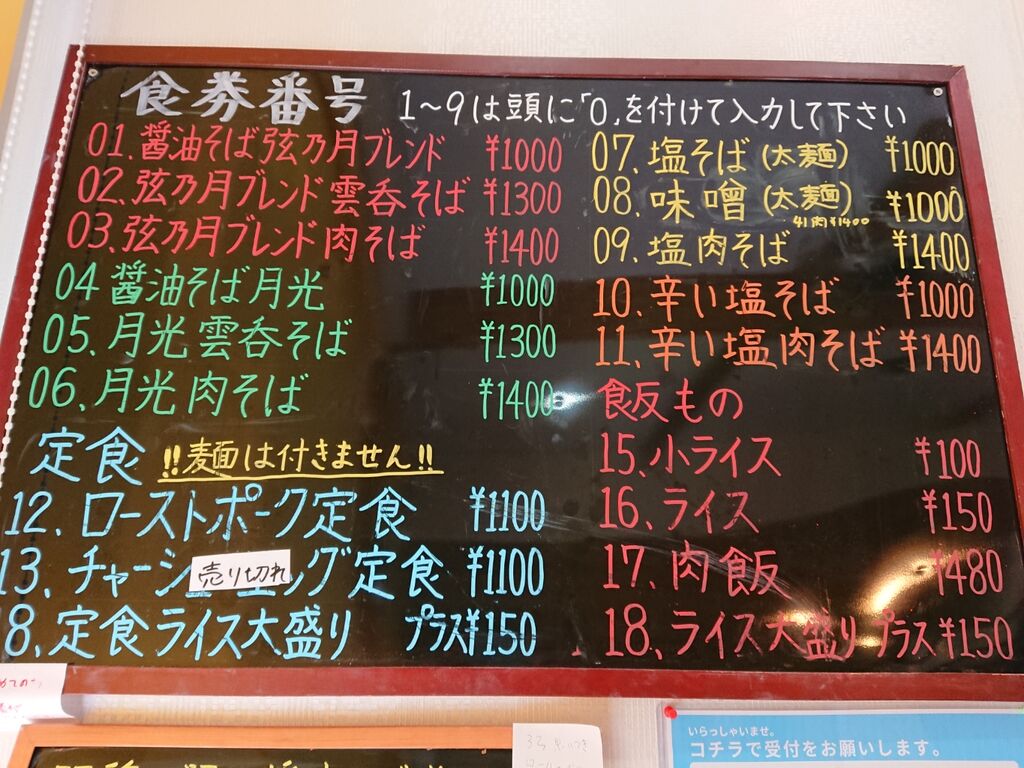 食券番号 1～9は頭に「0」を付けて入力して下さい
01.醤油そば弦乃月ブレンド ¥1000
02.弦乃月ブレンド雲呑そば ¥1300
03.弦乃月ブレンド肉そば ¥1400
04 醤油そば月光 ¥1000
05.月光雲呑そば ¥1300
06.月光肉そば ¥1400
定食 !!麺は付きません!!
12.ローストポーク定食 ¥1100
13.チャーシューエッグ定食 ¥1100
売り切れ
8.定食ライス大盛り プラス¥150
07.塩そば(太麺) ¥1000
08.味噌(太麺) ¥1000
肉¥1400
09.塩肉そば ¥1400
10.辛い塩そば ¥1000
11.辛い塩肉そば ¥1400
飯もの
15.小ライス ¥100
16.ライス ¥150
17.肉飯 ¥480
18.ライス大盛り プラス¥150
いらっしゃいませ。
コチラで受付をお願いします。